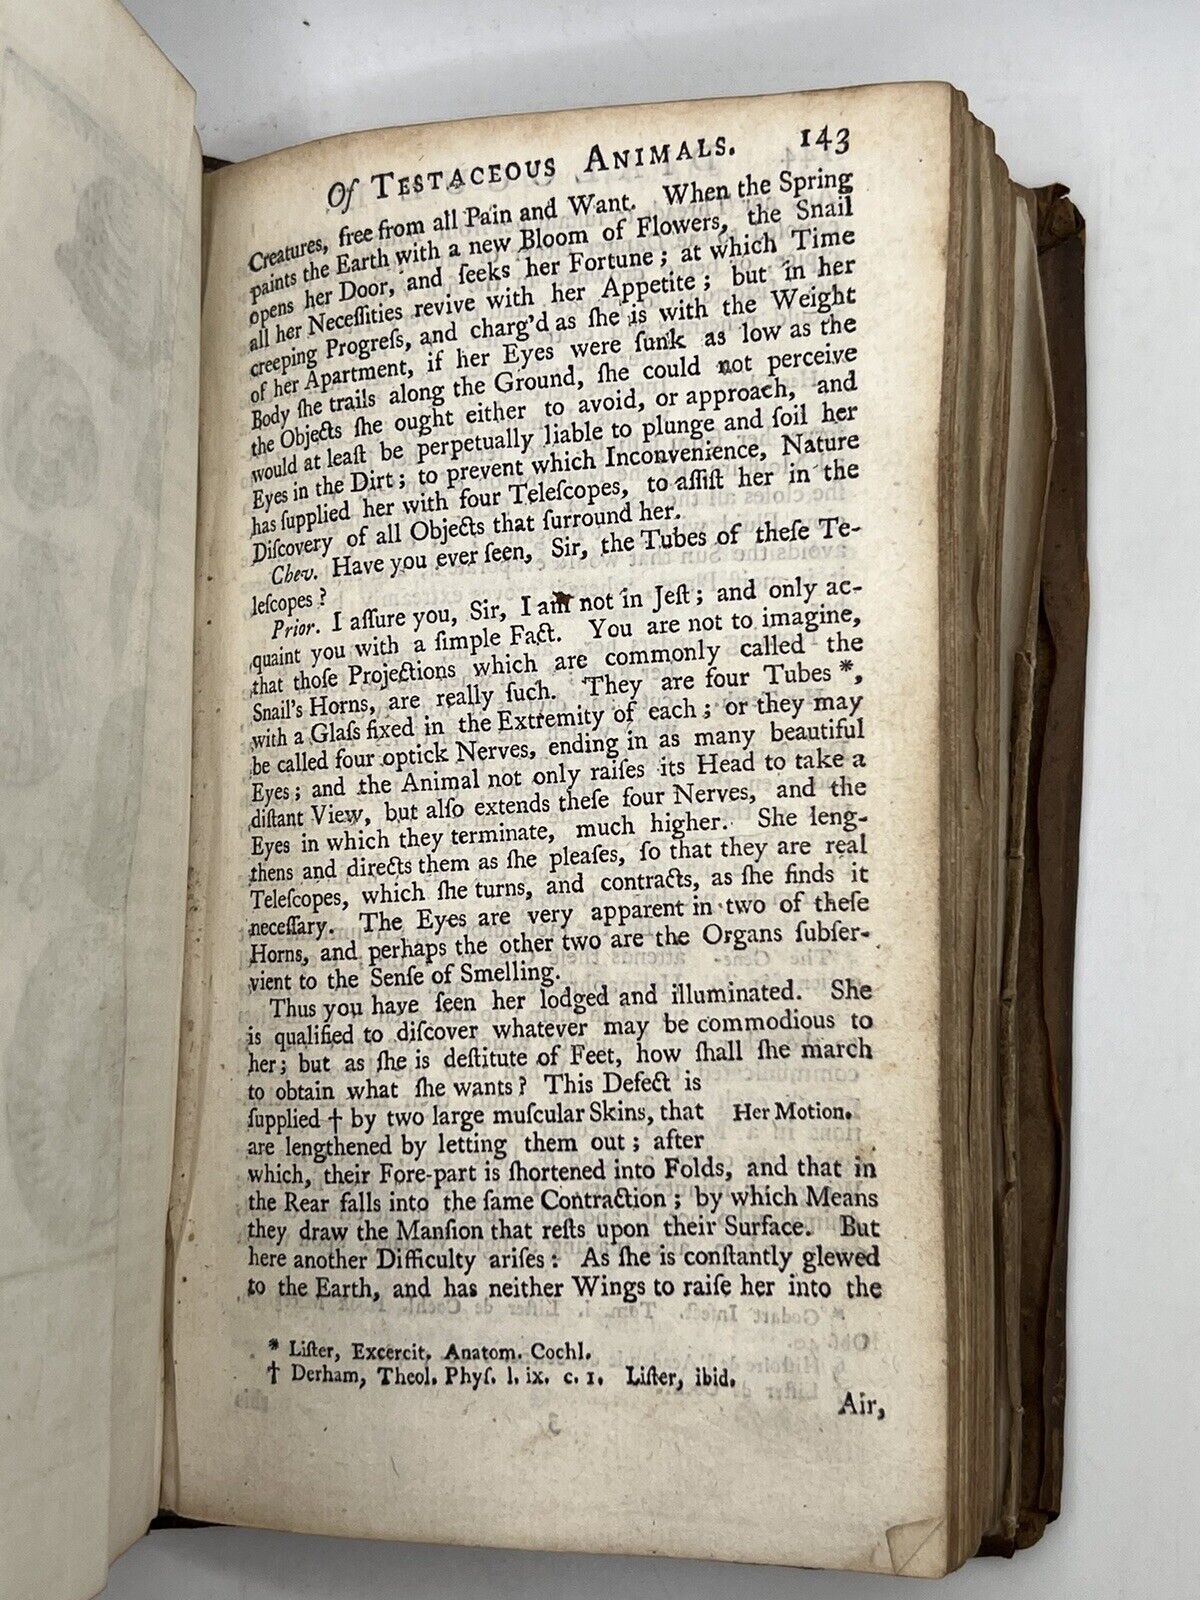 Of TESTACEOUS ANIMALS. 143
Creatures, free from all Pain and Want. When the Spring
paints the Earth with a new Bloom of Flowers, the Snail
opens her Door, and ſeeks her Fortune; at which Time
all her Neceſſities revive with her Appetite; but in her
creeping Progreſs, and charg'd as ſhe is with the Weight
of her Apartment, if her Eyes were ſunk as low as the
Body ſhe trails along the Ground, ſhe could not perceive
the Objects ſhe ought either to avoid, or approach, and
would at leaſt be perpetually liable to plunge and ſoil her
Eyes in the Dirt; to prevent which Inconvenience, Nature
has ſupplied her with four Teleſcopes, to aſſiſt her in the
Diſcovery of all Objects that ſurround her.
Chev. Have you ever ſeen, Sir, the Tubes of theſe Te-
leſcopes?
Prior. I aſſure you, Sir, I am not in Jeſt; and only ac-
quaint you with a ſimple Fact. You are not to imagine,
that thoſe Projections which are commonly called the
Snail's Horns, are really ſuch. They are four Tubes *,
with a Glaſs fixed in the Extremity of each; or they may
be called four optick Nerves, ending in as many beautiful
Eyes; and the Animal not only raiſes its Head to take a
diſtant View, but alſo extends theſe four Nerves, and the
Eyes in which they terminate, much higher. She leng-
thens and directs them as ſhe pleaſes, ſo that they are real
Teleſcopes, which ſhe turns, and contracts, as ſhe finds it
neceſſary. The Eyes are very apparent in two of theſe
Horns, and perhaps the other two are the Organs ſubſer-
vient to the Senſe of Smelling.
Thus you have ſeen her lodged and illuminated. She
is qualified to diſcover whatever may be commodious to
her; but as ſhe is deſtitute of Feet, how ſhall ſhe march
to obtain what ſhe wants? This Defect is
ſupplied † by two large muſcular Skins, that Her Motion.
are lengthened by letting them out; after
which, their Fore-part is ſhortened into Folds, and that in
the Rear falls into the ſame Contraction; by which Means
they draw the Manſion that reſts upon their Surface. But
here another Difficulty ariſes: As ſhe is conſtantly glewed
to the Earth, and has neither Wings to raiſe her into the
* Liſter, Excercit. Anatom. Cochl.
† Derham, Theol. Phyſ. l. ix. c. 1. Liſter, ibid.
Air,